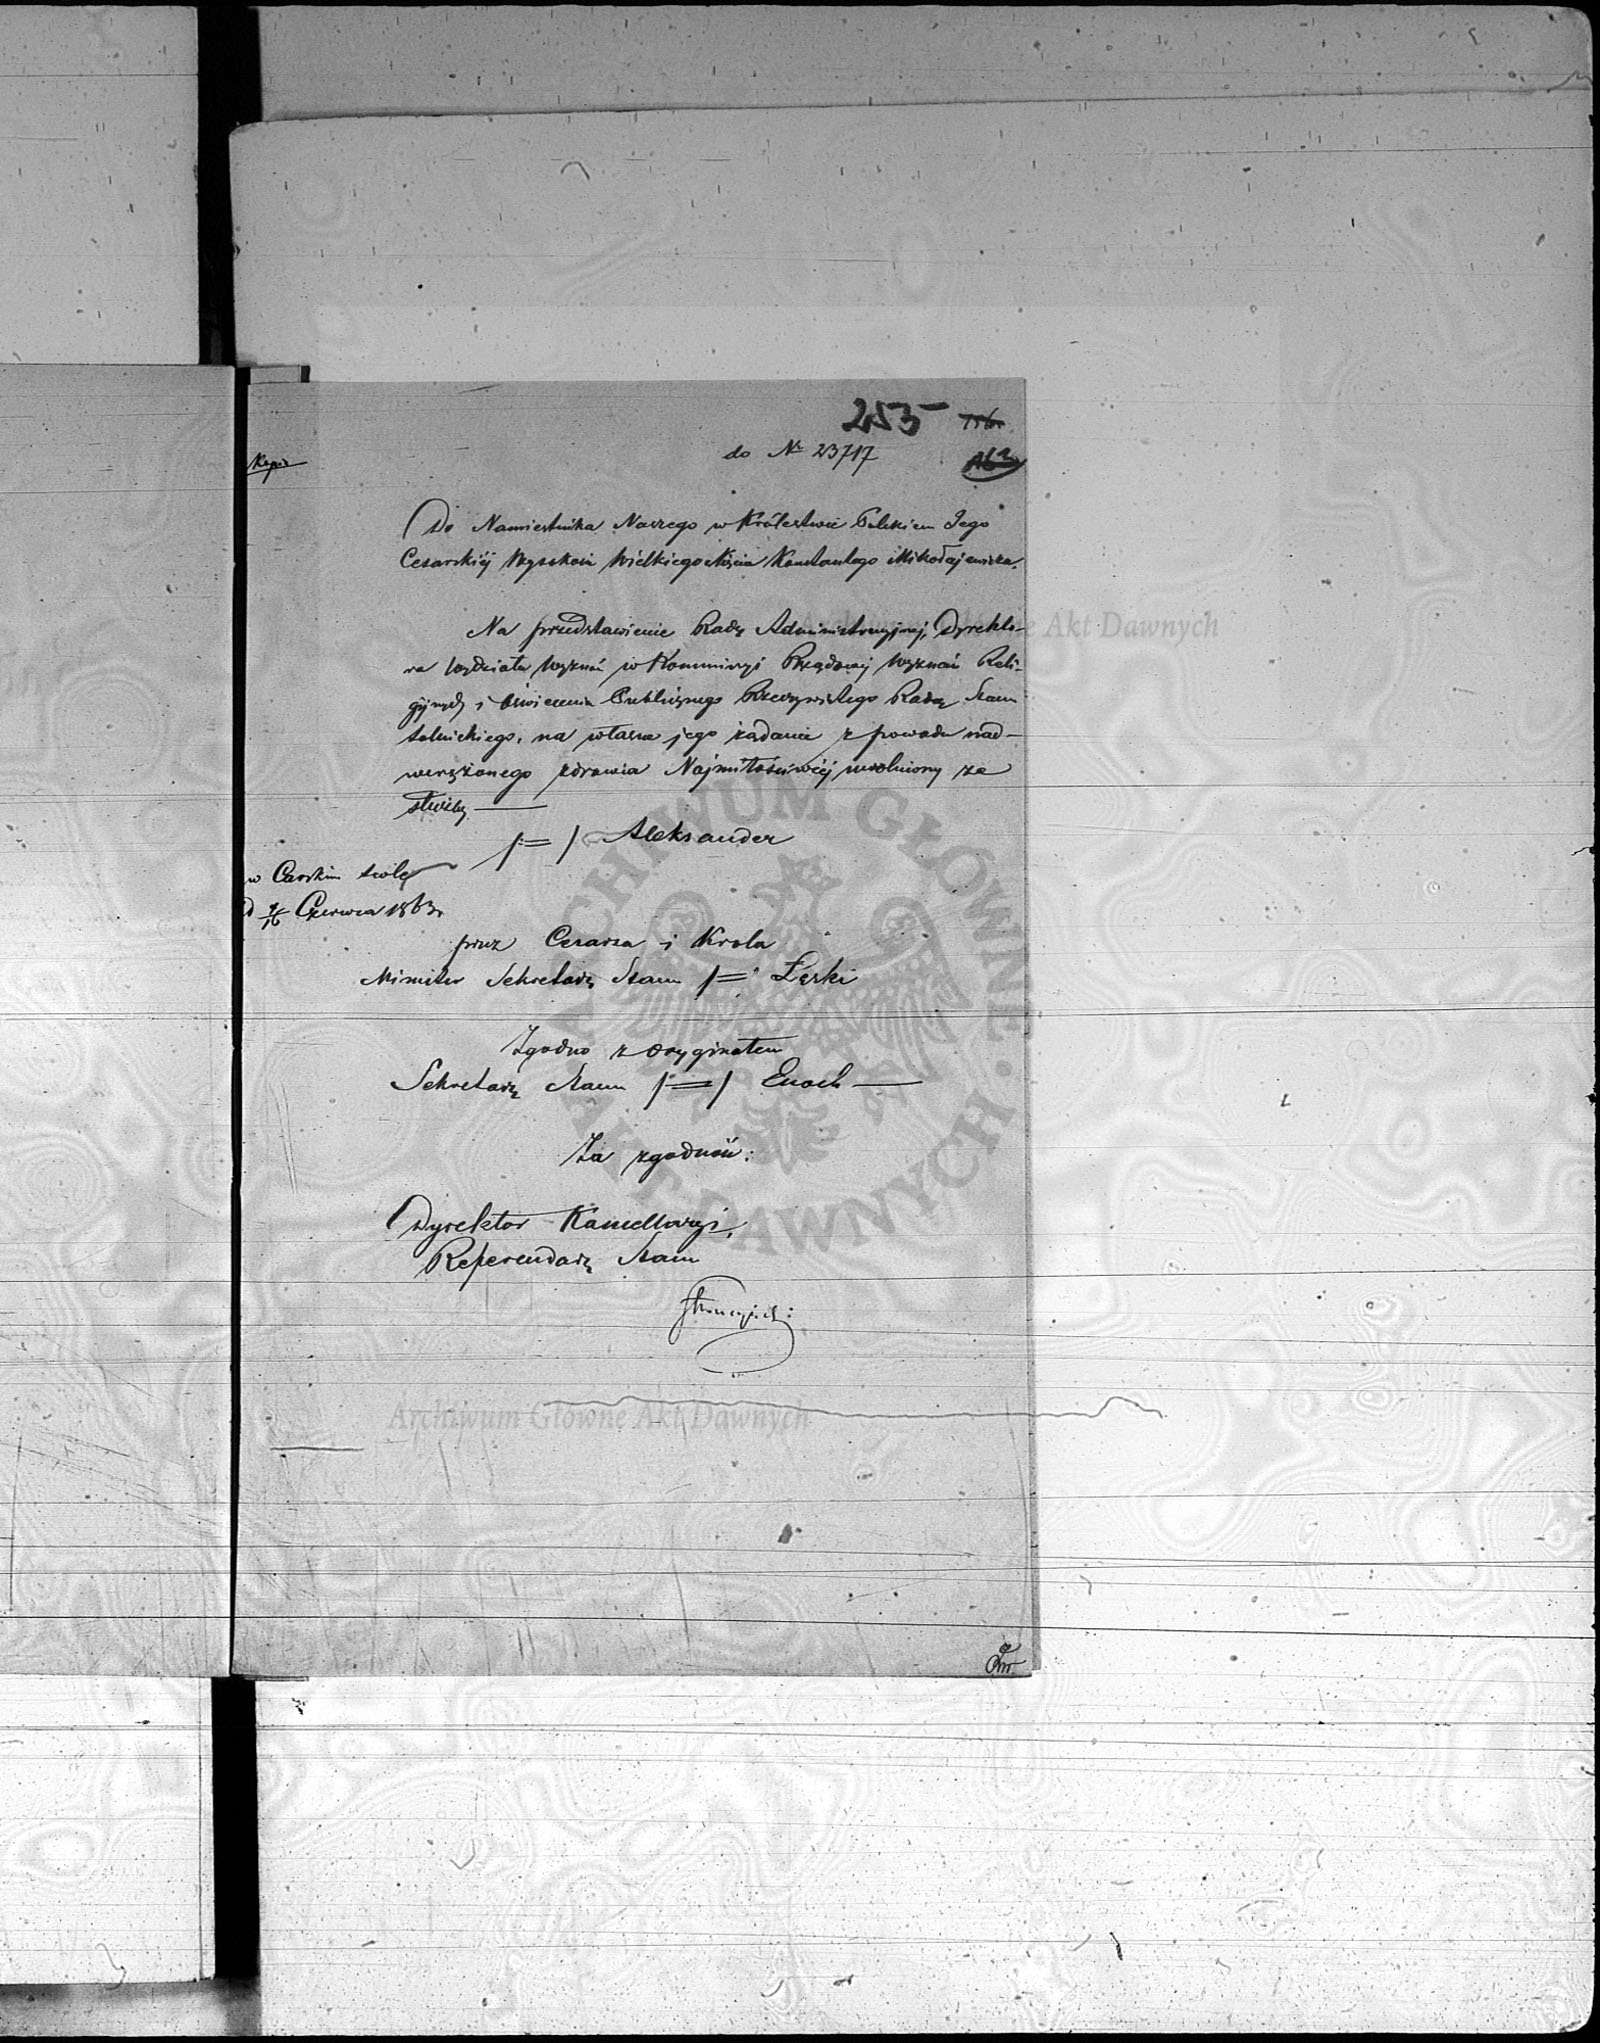 253
do № 23717
Kopia
Do Namiestnika Naszego w Królestwie Polskiem Jego
Cesarskiéj Wysokości Wielkiego Księcia Konstantego Mikołajewicza.
Na przedstawienie Rady Administracyjnej, Dyrekto-
ra Wydziału Wyznań w Kommissyi Rządowej Wyznań Reli-
gijnych i Oświecenia Publicznego Rzeczywistego Radcę Stanu
na własne jego żądanie z powodu nad-
werężonego zdrowia Najmiłościwiéj uwolniony ze
służby —
/=/ Aleksander
w Carskim Siole
d 4/16 Czerwca 1863r
przez Cesarza i Króla
Minister Sekretarz Stanu /=/ Łęski
Zgodno z oryginałem
Sekretarz Stanu /=/ Enoch —
Za zgodność:
Dyrektor Kancellaryi,
Referendarz Stanu
Archiwum Główne Akt Dawnych
ARCHIWUM GŁÓWNE AKT DAWNYCH
Archiwum Główne Akt Dawnych